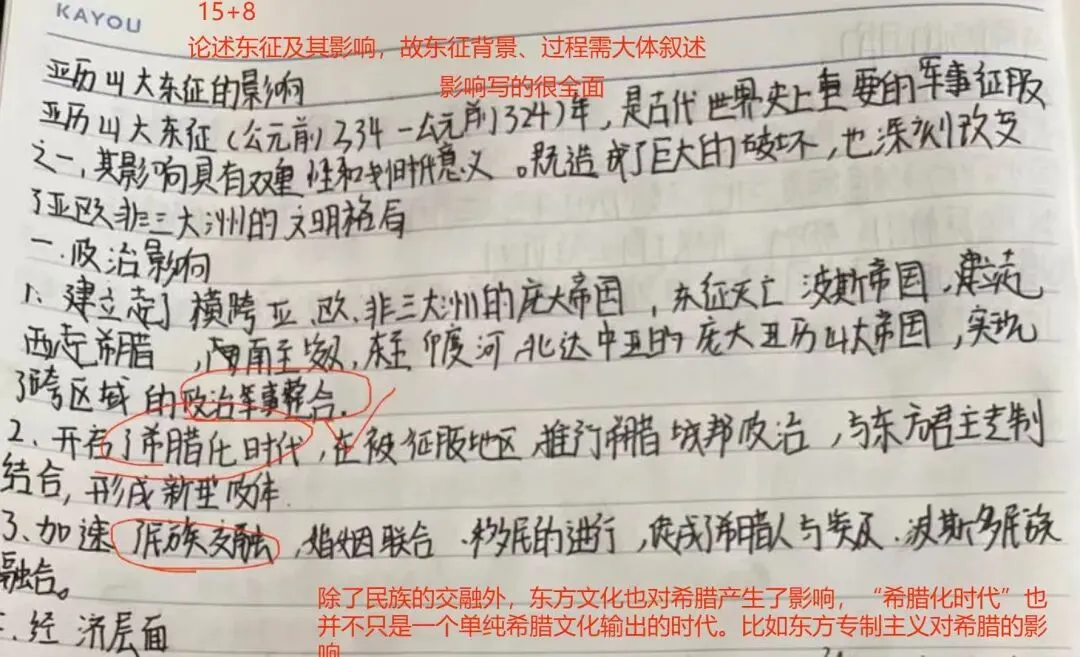 KAYOU
15+8
论述东征及其影响，故东征背景、过程需大体叙述
影响写的很全面
亚历山大东征的影响
亚历山大东征(公元前334-公元前324)年，是古代世界史上重要的军事征服
之一，其影响具有双重性和划时代意义。既造成了巨大的破坏，也深刻改变
了亚欧非三大洲的文明格局
一.政治影响
1、建立起了横跨亚、欧、非三大洲的庞大帝国，东征灭亡波斯帝国，建立起
西起希腊，南至埃及，东至印度河，北达中亚的庞大亚历山大帝国，实现
了跨区域的政治军事整合。
2、开启了希腊化时代，在被征服地区推行希腊城邦政治，与东方君主专制
结合，形成新型政体
3、加速民族交融，婚姻联合、移民的进行，促成了希腊人与埃及、波斯多民族
融合。
除了民族的交融外，东方文化也对希腊产生了影响，“希腊化时代”也
并不只是一个单纯希腊文化输出的时代。比如东方专制主义对希腊的影
响
二.经济层面